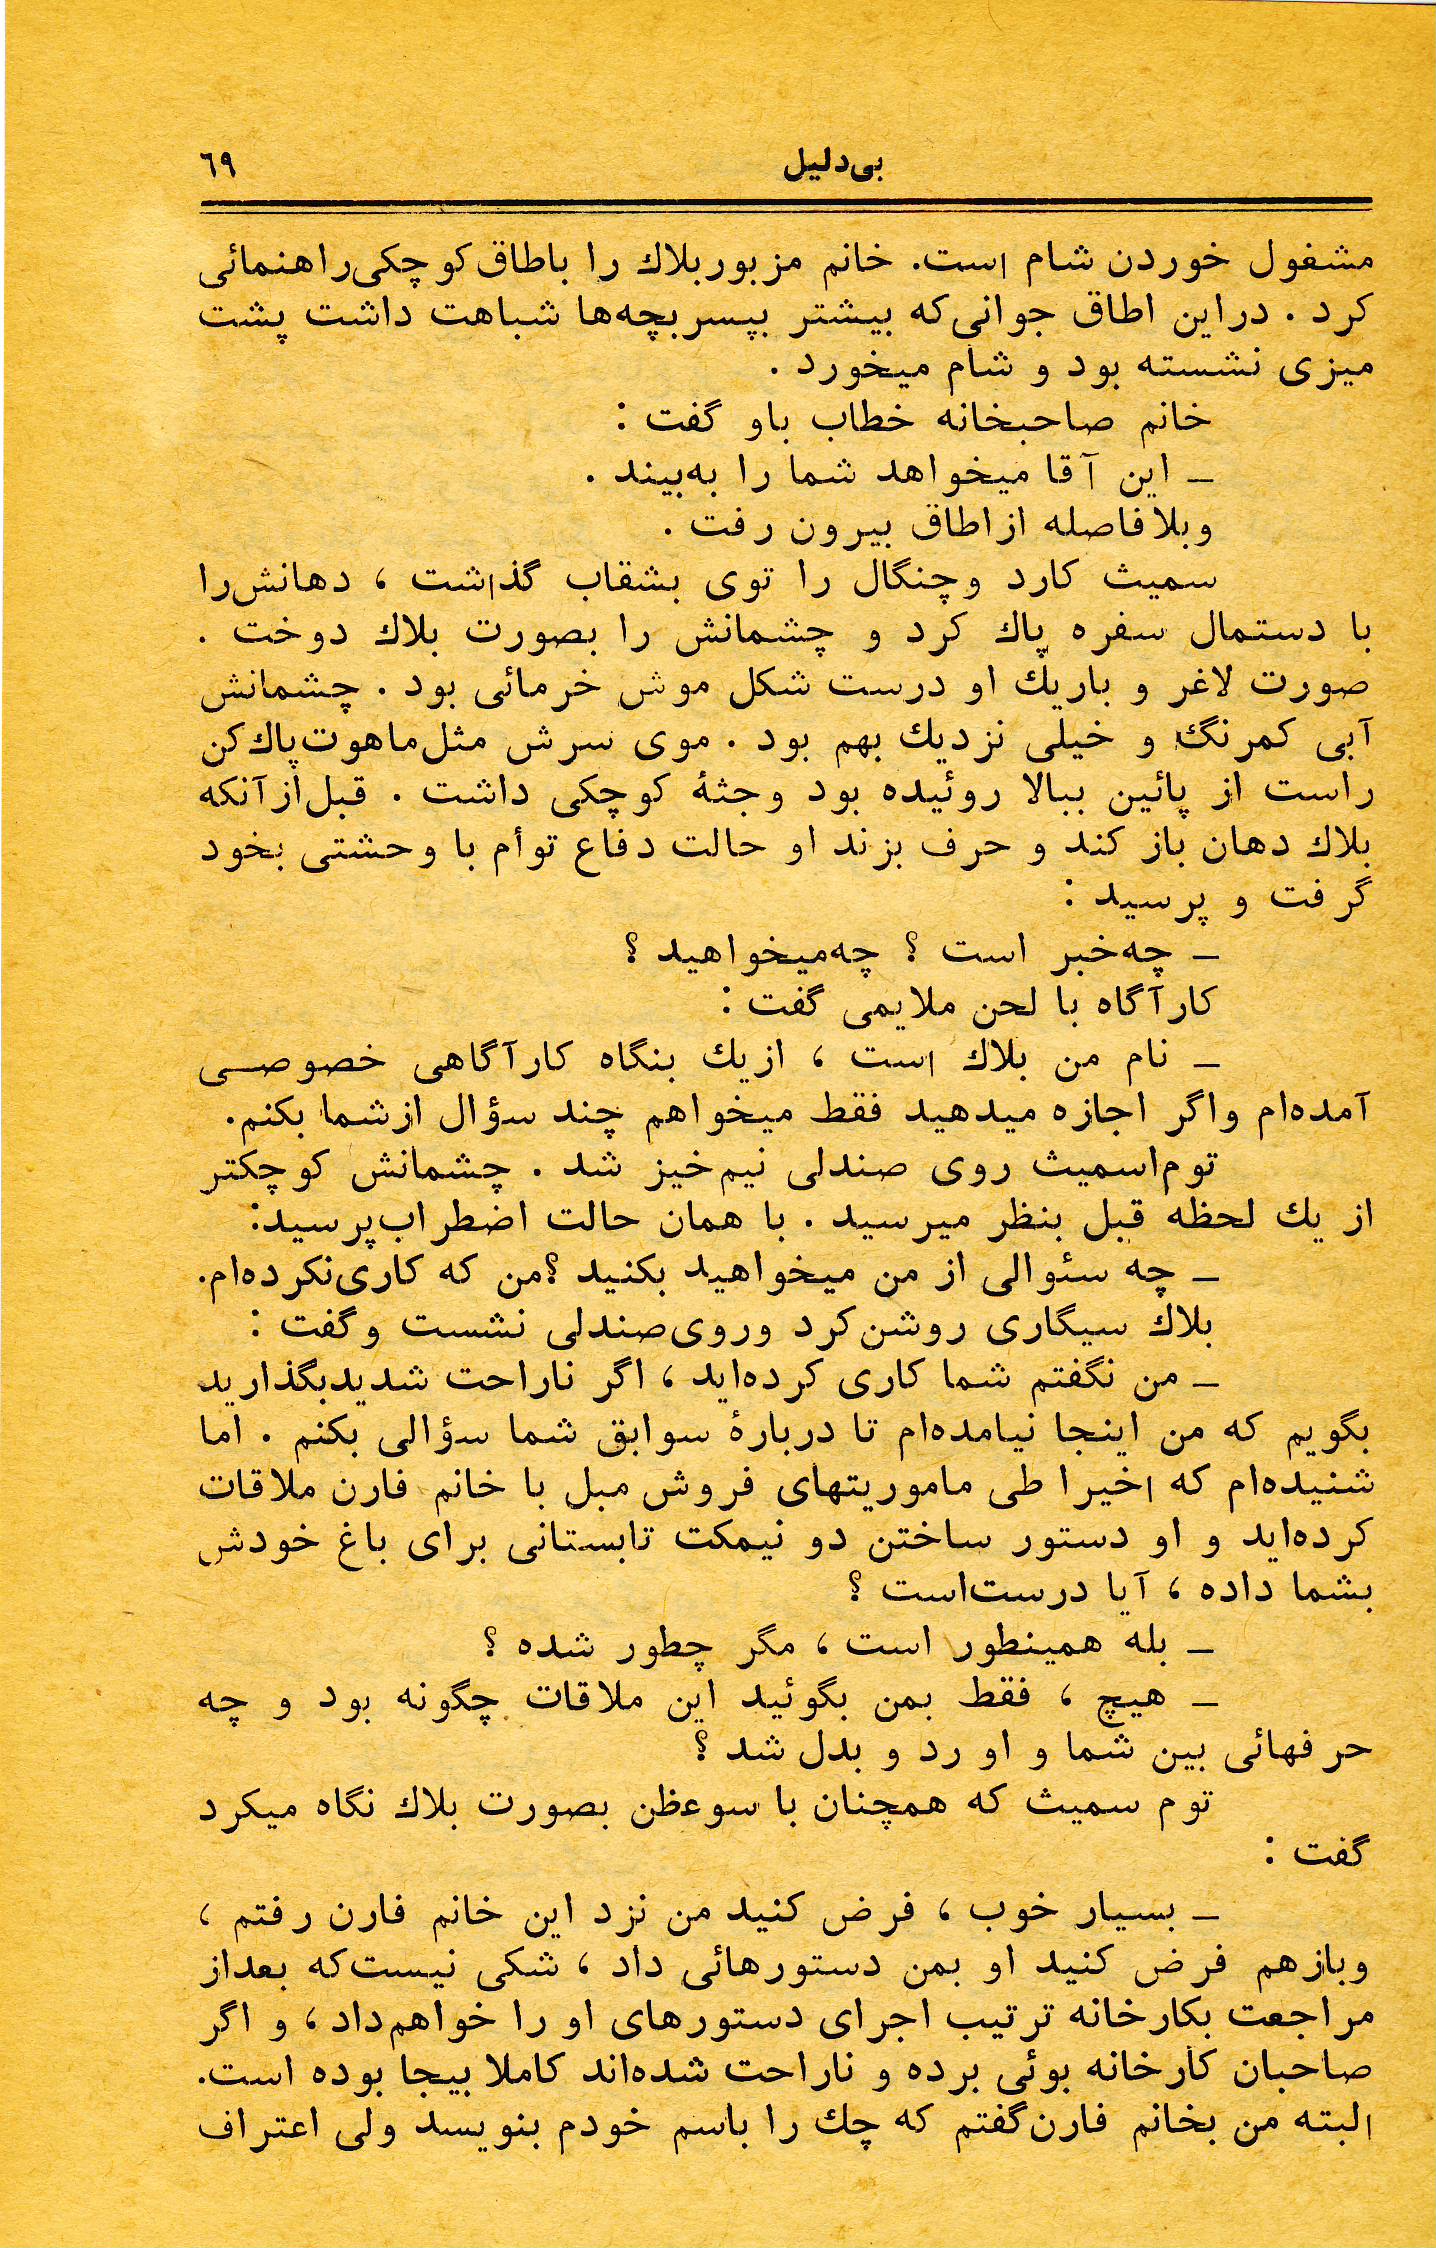 بی‌دلیل ٦٩
مشغول خوردن شام است. خانم مزبور بلاك را باطاق کوچکی راهنمائی
کرد . دراین اطاق جوانی که بیشتر بپسربچه‌ها شباهت داشت پشت
میزی نشسته بود و شام میخورد .
خانم صاحبخانه خطاب باو گفت :
ــ این آقا میخواهد شما را به‌بیند .
وبلافاصله ازاطاق بیرون رفت .
سمیث کارد وچنگال را توی بشقاب گذاشت ، دهانش‌را
با دستمال سفره پاك کرد و چشمانش را بصورت بلاك دوخت .
صورت لاغر و باریك او درست شکل موش خرمائی بود . چشمانش
آبی کمرنگ و خیلی نزدیك بهم بود . موی سرش مثل ماهوت‌پاك‌کن
راست از پائین ببالا روئیده بود وجثهٔ کوچکی داشت . قبل‌ازآنکه
بلاك دهان باز کند و حرف بزند او حالت دفاع توأم با وحشتی بخود
گرفت و پرسید :
ــ چه‌خبر است ؟ چه‌میخواهید ؟
کارآگاه با لحن ملایمی گفت :
ــ نام من بلاك است ، ازیك بنگاه کارآگاهی خصوصی
آمده‌ام واگر اجازه میدهید فقط میخواهم چند سؤال ازشما بکنم.
توم‌اسمیث روی صندلی نیم‌خیز شد . چشمانش کوچکتر
از یك لحظه قبل بنظر میرسید . با همان حالت اضطراب‌پرسید:
ــ چه سئوالی از من میخواهید بکنید ؟من که کاری‌نکرده‌ام.
بلاك سیگاری روشن‌کرد وروی‌صندلی نشست وگفت :
ــ من نگفتم شما کاری کرده‌اید ، اگر ناراحت شدیدبگذارید
بگویم که من اینجا نیامده‌ام تا دربارهٔ سوابق شما سؤالی بکنم . اما
شنیده‌ام که اخیرا طی ماموریتهای فروش مبل با خانم فارن ملاقات
کرده‌اید و او دستور ساختن دو نیمکت تابستانی برای باغ خودش
بشما داده ، آیا درست‌است ؟
ــ بله همینطور است ، مگر چطور شده ؟
ــ هیچ ، فقط بمن بگوئید این ملاقات چگونه بود و چه
حرفهائی بین شما و او رد و بدل شد ؟
توم سمیث که همچنان با سوءظن بصورت بلاك نگاه میکرد
گفت :
ــ بسیار خوب ، فرض کنید من نزد این خانم فارن رفتم ،
وبازهم فرض کنید او بمن دستورهائی داد ، شکی نیست‌که بعداز
مراجعت بکارخانه ترتیب اجرای دستورهای او را خواهم‌داد ، و اگر
صاحبان کارخانه بوئی برده و ناراحت شده‌اند کاملا بیجا بوده است.
البته من بخانم فارن‌گفتم که چك را باسم خودم بنویسد ولی اعتراف